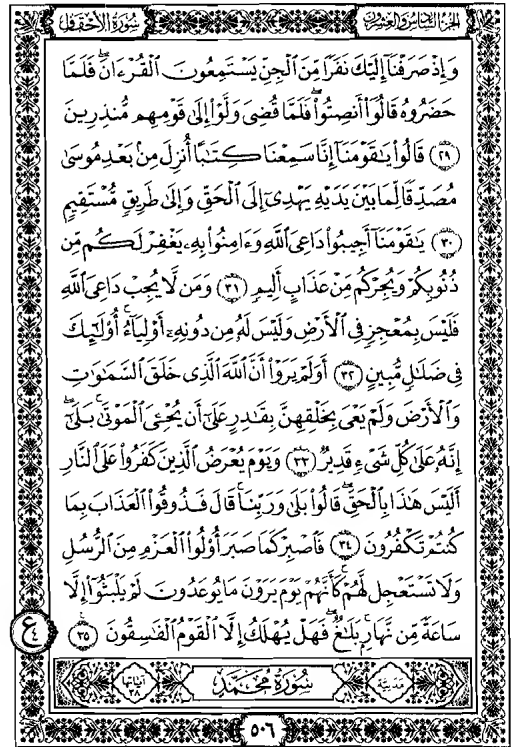 الجزء السادس والعشرون سورة الأحقاف
وَإِذْ صَرَفْنَآ إِلَيْكَ نَفَرًا مِّنَ ٱلْجِنِّ يَسْتَمِعُونَ ٱلْقُرْءَانَ فَلَمَّا
حَضَرُوهُ قَالُوٓا۟ أَنصِتُوا۟ ۖ فَلَمَّا قُضِىَ وَلَّوْا۟ إِلَىٰ قَوْمِهِم مُّنذِرِينَ
﴿٢٩﴾ قَالُوا۟ يَٰقَوْمَنَآ إِنَّا سَمِعْنَا كِتَٰبًا أُنزِلَ مِنۢ بَعْدِ مُوسَىٰ
مُصَدِّقًا لِّمَا بَيْنَ يَدَيْهِ يَهْدِىٓ إِلَى ٱلْحَقِّ وَإِلَىٰ طَرِيقٍ مُّسْتَقِيمٍ
﴿٣٠﴾ يَٰقَوْمَنَآ أَجِيبُوا۟ دَاعِىَ ٱللَّهِ وَءَامِنُوا۟ بِهِۦ يَغْفِرْ لَكُم مِّن
ذُنُوبِكُمْ وَيُجِرْكُم مِّنْ عَذَابٍ أَلِيمٍ ﴿٣١﴾ وَمَن لَّا يُجِبْ دَاعِىَ ٱللَّهِ
فَلَيْسَ بِمُعْجِزٍ فِى ٱلْأَرْضِ وَلَيْسَ لَهُۥ مِن دُونِهِۦٓ أَوْلِيَآءُ ۚ أُو۟لَٰٓئِكَ
فِى ضَلَٰلٍ مُّبِينٍ ﴿٣٢﴾ أَوَلَمْ يَرَوْا۟ أَنَّ ٱللَّهَ ٱلَّذِى خَلَقَ ٱلسَّمَٰوَٰتِ
وَٱلْأَرْضَ وَلَمْ يَعْىَ بِخَلْقِهِنَّ بِقَٰدِرٍ عَلَىٰٓ أَن يُحْـِۧىَ ٱلْمَوْتَىٰ ۚ بَلَىٰٓ
إِنَّهُۥ عَلَىٰ كُلِّ شَىْءٍ قَدِيرٌ ﴿٣٣﴾ وَيَوْمَ يُعْرَضُ ٱلَّذِينَ كَفَرُوا۟ عَلَى ٱلنَّارِ
أَلَيْسَ هَٰذَا بِٱلْحَقِّ ۖ قَالُوا۟ بَلَىٰ وَرَبِّنَا ۚ قَالَ فَذُوقُوا۟ ٱلْعَذَابَ بِمَا
كُنتُمْ تَكْفُرُونَ ﴿٣٤﴾ فَٱصْبِرْ كَمَا صَبَرَ أُو۟لُوا۟ ٱلْعَزْمِ مِنَ ٱلرُّسُلِ
وَلَا تَسْتَعْجِل لَّهُمْ ۚ كَأَنَّهُمْ يَوْمَ يَرَوْنَ مَا يُوعَدُونَ لَمْ يَلْبَثُوٓا۟ إِلَّا
سَاعَةً مِّن نَّهَارٍۭ ۚ بَلَٰغٌ ۚ فَهَلْ يُهْلَكُ إِلَّا ٱلْقَوْمُ ٱلْفَٰسِقُونَ ﴿٣٥﴾
ع ٤
مدنية سُورَةُ مُحَمَّدٍ آياتها ٣٨
٥٠٦